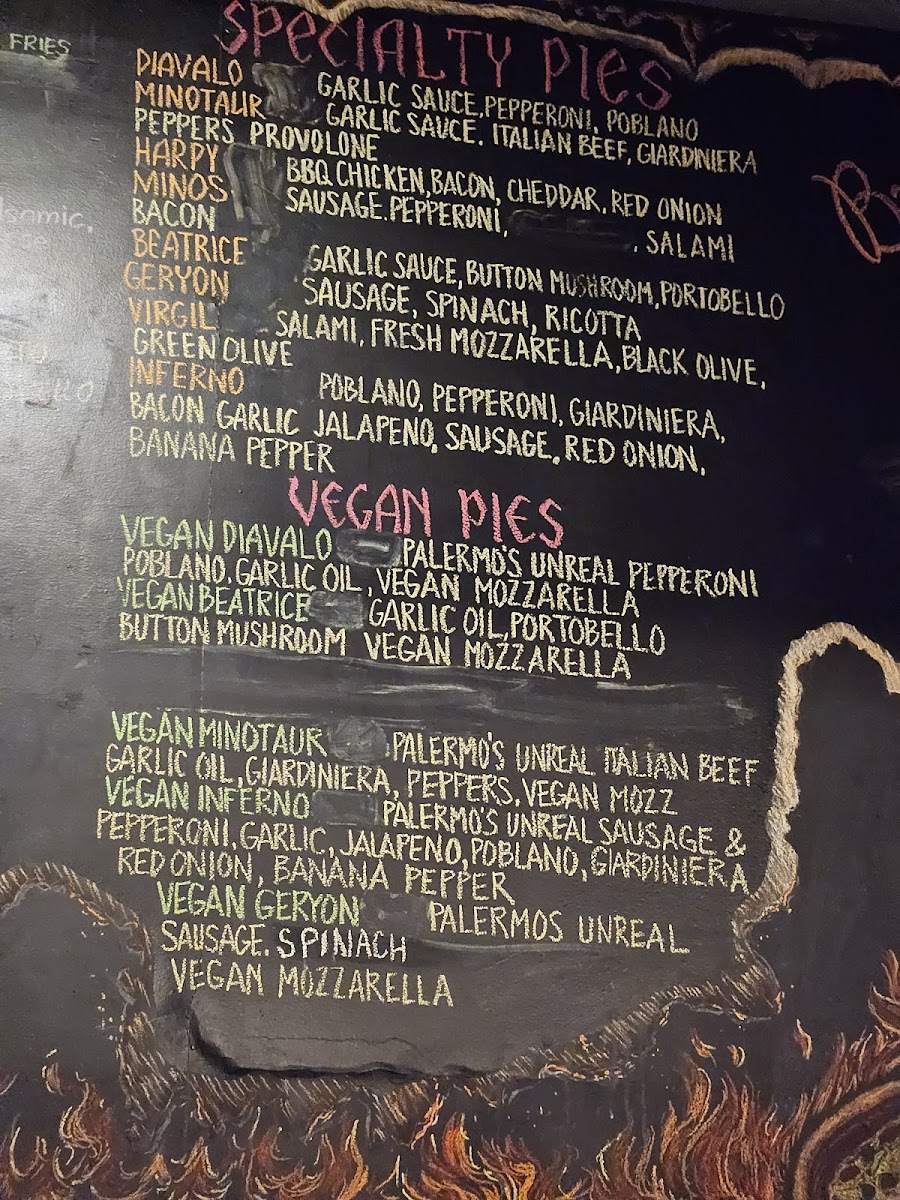 FRIES
SPECIALTY PIES
DIAVALO GARLIC SAUCE, PEPPERONI, POBLANO
MINOTAUR GARLIC SAUCE. ITALIAN BEEF, GIARDINIERA
PEPPERS PROVOLONE
HARPY BBQ CHICKEN, BACON, CHEDDAR, RED ONION
MINOS SAUSAGE. PEPPERONI, , SALAMI
BACON
BEATRICE GARLIC SAUCE, BUTTON MUSHROOM, PORTOBELLO
GERYON SAUSAGE, SPINACH, RICOTTA
VIRGIL SALAMI, FRESH MOZZARELLA, BLACK OLIVE,
GREEN OLIVE
INFERNO POBLANO, PEPPERONI, GIARDINIERA,
BACON GARLIC JALAPENO, SAUSAGE, RED ONION,
BANANA PEPPER
VEGAN PIES
VEGAN DIAVALO PALERMO'S UNREAL PEPPERONI
POBLANO, GARLIC OIL, VEGAN MOZZARELLA
VEGAN BEATRICE GARLIC OIL, PORTOBELLO
BUTTON MUSHROOM VEGAN MOZZARELLA
VEGAN MINOTAUR PALERMO'S UNREAL ITALIAN BEEF
GARLIC OIL, GIARDINIERA, PEPPERS, VEGAN MOZZ
VEGAN INFERNO PALERMO'S UNREAL SAUSAGE &
PEPPERONI, GARLIC, JALAPENO, POBLANO, GIARDINIERA
RED ONION, BANANA PEPPER
VEGAN GERYON PALERMOS UNREAL
SAUSAGE. SPINACH
VEGAN MOZZARELLA